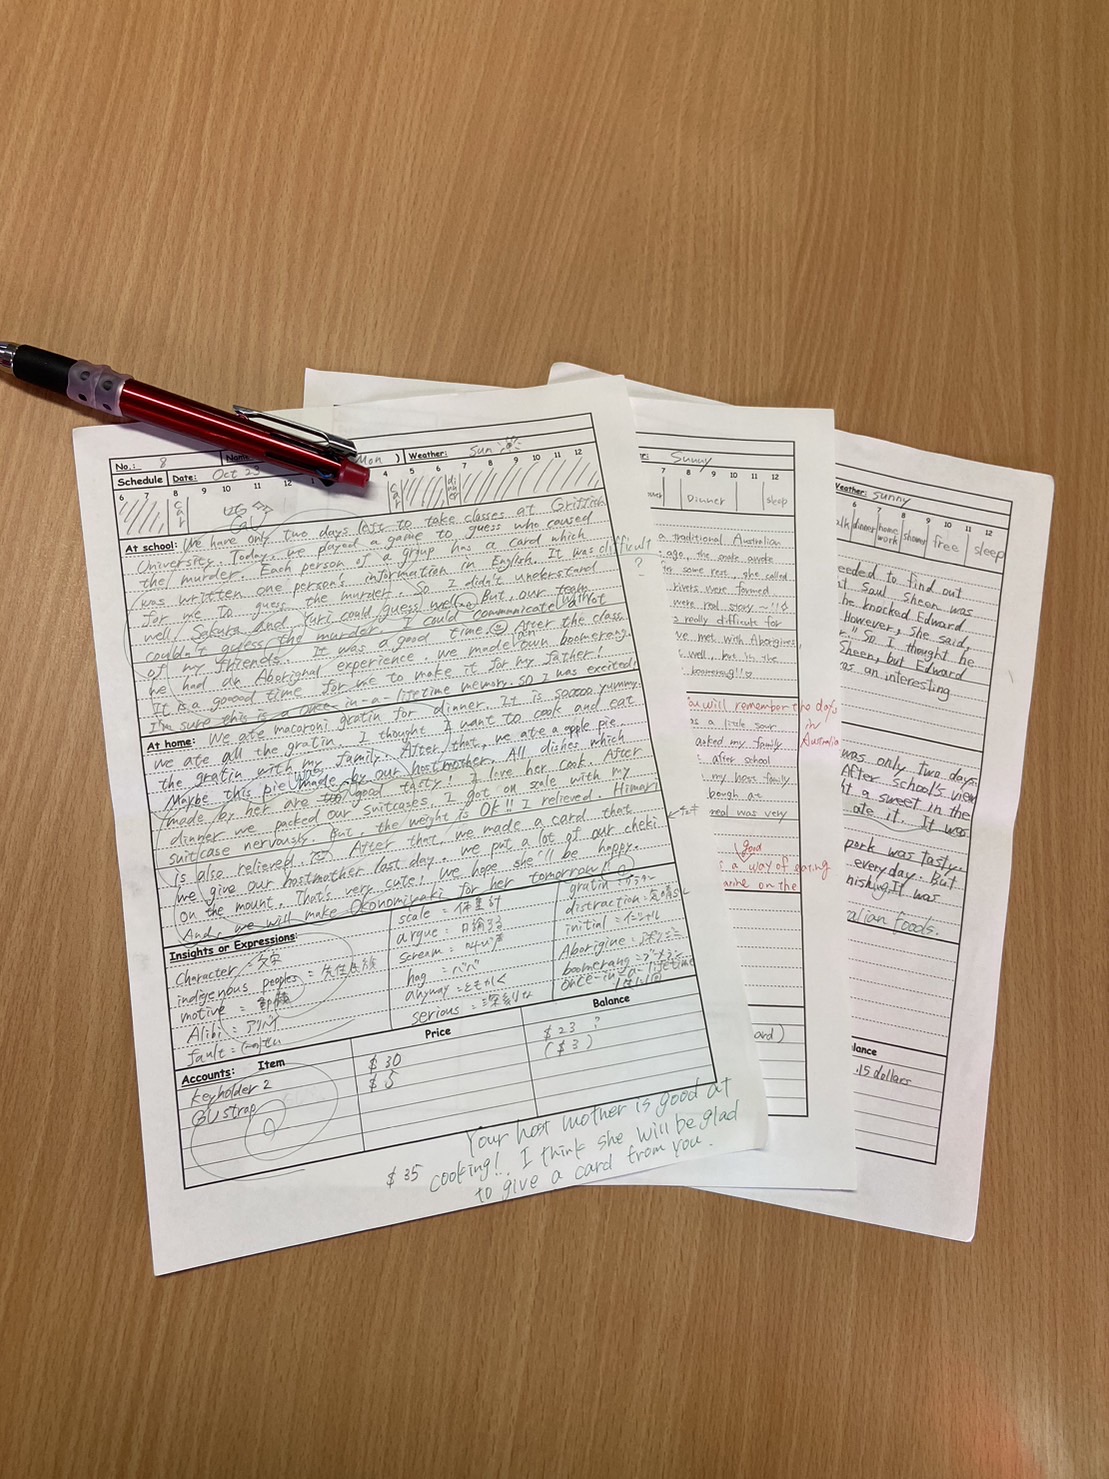 No.: 8
Mon ) Weather: Sun
Schedule Date: Oct 23
6 7 8 9 10 11 12 1 4 5 6 7 8 9 10 11 12
car
car
dinner
At school: We have only two days left to take classes at Griffith
University. Today, we played a game to guess who caused
the murder. Each person of a group has a card which
was written one person's information in English. It was difficult
for me to guess the murder. So I didn't understand
well. Sakura and Yuri could guess well. But, our team
couldn't guess the murder. I could communicate with a lot
of my friends. It was a good time. After the class
we had an Aboriginal experience. we made own boomerang.
It is a goood time for me to make it for my father!
I'm sure this is a once-in-a-lifetime memory. So I was excited!
At home: We ate macaroni gratin for dinner. It is soooo yummy.
we ate all the gratin. I thought I want to cook and eat
the gratin with my family. After that, we ate a apple pie.
Maybe this pie was made by our hostmother. All dishes which
made by her are good tasty! I love her cook. After
dinner we packed our suitcases. I got on scale with my
suitcase nervously. But, the weight is OK!! I relieved. Himari
is also relieved. After that, we made a card that
we give our hostmother last day. we put a lot of our cheki
on the mount. That's very cute! We hope she'll be happy.
And, we will make Okonomiyaki for her tomorrow!
Insights or Expressions:
Character = 文字
indigenous peoples = 先住民族
motive =
Alibi = アリバイ
fault =
scale = 体重計
argue = 口論する
scream = 叫び声
hag = ババ
anyway = ともかく
serious = 深刻な
gratin = グラタン
distraction = 気晴らし
initial = イニシャル
Aborigine =
boomerang = ブーメラン
once-in-a-lifetime
一生に一回
Accounts: Item
Price
Balance
keyholder 2
$ 30
$ 23 ?
GU strap
$ 5
( $ 3 )
$ 35
Your host mother is good at
cooking! I think she will be glad
to give a card from you.
Sunny
7 8 9 10 11 12
Dinner
sleep
a traditional Australian
ago, the snake awoke
in some rest, she called
rivers were formed
were real story ~!!
really difficult for
ve met with Aborigines,
well, but in the
boomerang!!
?
You will remember the days
in
Australia
as a little sour
asked my family
after school
my host family
bough at
real was very
good
a way of
on the
ard)
Weather: sunny
6 7 8 9 10 11 12
alk
dinner
home work
shower
free
sleep
eeded to find out
t Saul Sheen was
he knocked Edward.
However, She said,
r." So I thought he
Sheen, but Edward
as an interesting
was only two days
After School's
ht a sweet in the
ate it. It was
pork was tasty.
everyday. But
nishug. It was
alian foods.
lance
.15 dollars